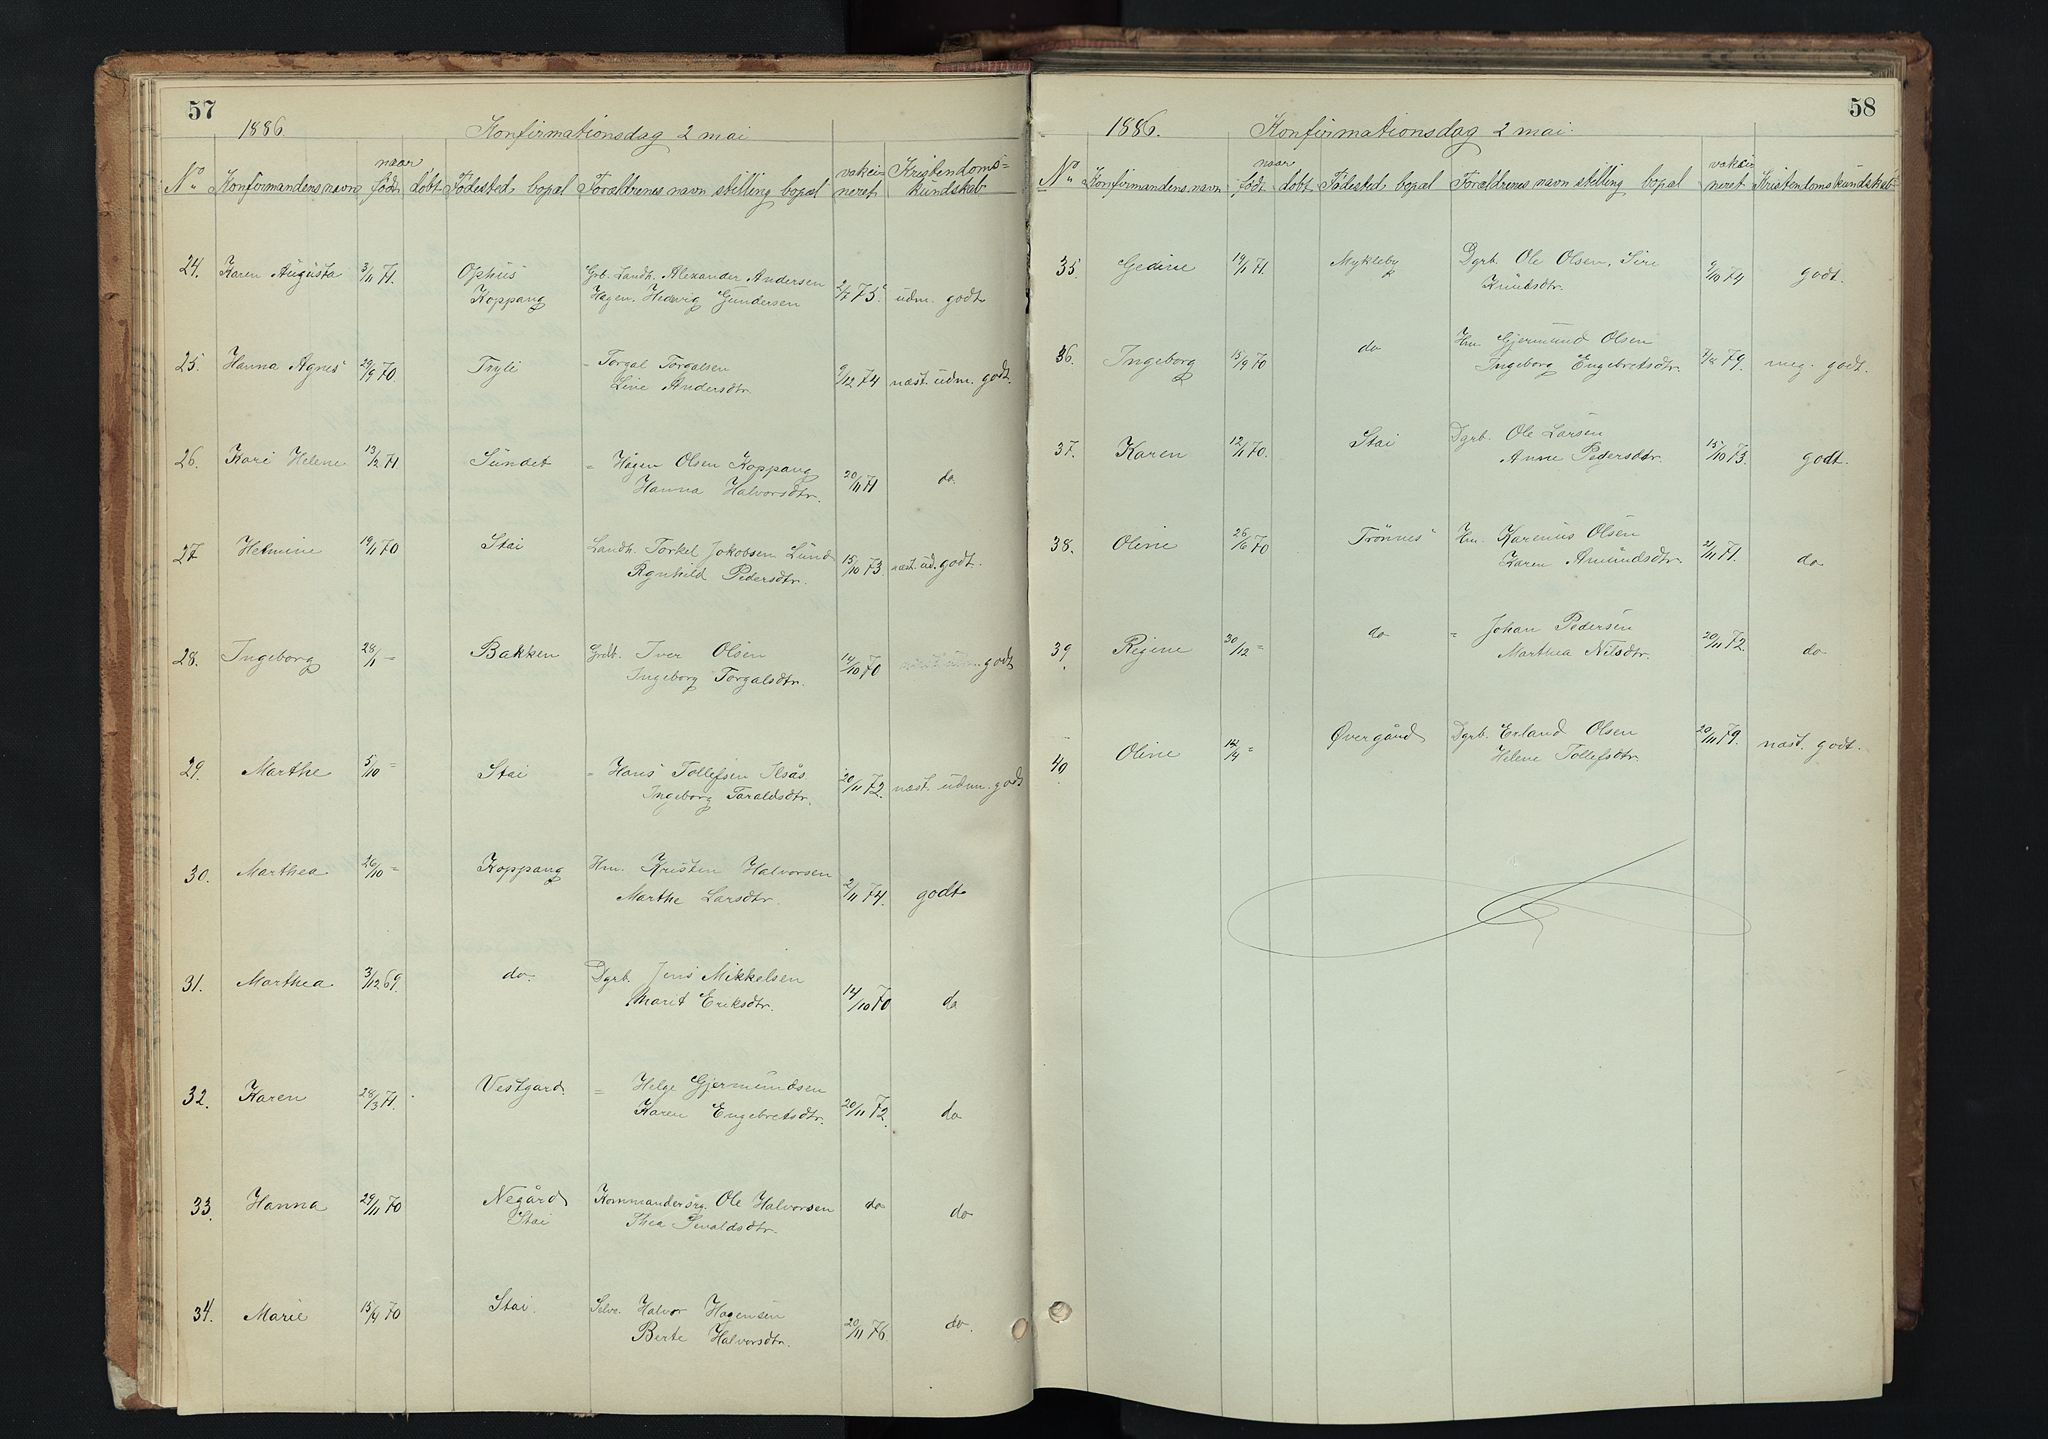 57
1886. Konfirmationsdag 2 mai
No Konfirmandens navn naar født døbt Fødested bopæl Forældrenes navn stilling bopæl vakcineret Kristendomskundskab
24. Karen Augusta 3/11 71. Ophus Grb. Landh. Alexander Andersen 2/7 75. udm. godt
Koppang Hagen. Hedvig Gundersen
25. Hanna Agnes 29/9 70. Tryli = Torgal Torgalsen 9/12 74 næst. udm. godt.
Line Andersdtr.
26. Kari Helene 13/2 71 Sundet = Hagen Olsen Koppang 20/11 71 do
Hanna Halvorsdtr.
27 Helmine 19/11 70 Stai Landh. Torkel Jokobsen Lund 15/10 73. næst. ud. godt.
Rgnhild Pedersdtr.
28. Ingeborg 28/11 = Bakken Grdb. Iver Olsen 14/10 70 næst. udm. godt
Ingeborg Torgalsdtr.
29. Marthe 5/10 = Stai = Hans Tollefsen Ilsås. 20/11 72. næst. udm. godt
Ingeborg Taraldsdtr.
30. Marthea 26/10 = Koppang Hm. Kristen Halvorsen 2/11 74. godt
Marthe Larsdtr.
31. Marthea 3/12 69. do. Dgrb. Jens Mikkelsen 14/10 70 do
Marit Eriksdtr.
32. Karen 28/3 71. Vestgard = Helge Gjermundsen 20/11 72. do
Karen Engebretsdtr.
33. Hanna 29/11 70 Negård Kommandersrg. Ole Halvorsen do do
Stai Thea Sevaldsdtr.
34. Marie 15/4 70 Stai. Selve. Halvor Hagensen 20/11 76. do.
Berte Halvorsdtr.
58
1886. Konfirmationsdag 2 mai.
No Konfirmandens navn naar født døbt Fødested bopæl Forældrenes navn stilling bopæl vakcineret Kristendomskundskab
35. Gedine 19/11 71. Mykleby Dgrb. Ole Olsen. Siri 9/10 74 godt.
Knudsdtr.
36. Ingeborg 15/9 70 do Hm. Gjermund Olsen 7/8 79. meg. godt.
Ingeborg Engebretsdtr.
37. Karen 12/11 70. Stai Dgrb. Ole Larsen 15/10 73. godt.
Anne Pedersdtr.
38. Oline 26/6 70 Trønnes Hm. Karenus Olsen 21/11 71. do
Karen Amundsdtr.
39. Regine 30/12 = do = Johan Pedersen 20/11 72. do
Marthea Nilsdtr.
40 Oline = Øvergård Dgrb. Erland Olsen 20/11 79. næst. godt.
Helene Tollefsdtr.